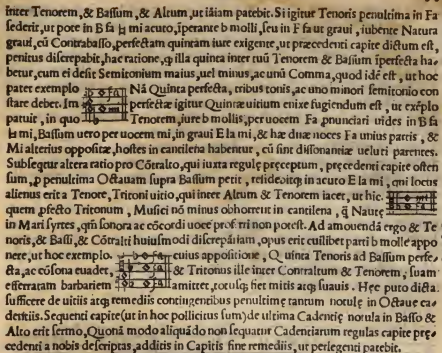 inter Tenorem, & Bassum, & Altum, ut iã iam patebit. Si igitur Tenoris penultima in Fa
sederit, ut pote in B fa ♮ mi acuto, īperante b molli, seu in F fa ut graui, iubente Natura
graui, cū Contrabasso, perfectam quintam iure exigente, ut præcedenti capite dictum est,
penitus discrepabit, hac ratione, q illa quinta inter tuū Tenorem & Bassum īperfecta ha
betur, cum ei desit Semitonium maius, uel minus, ac unũ Comma, quod idē est, ut hoc
pater exemplo Nã Quinta perfecta, tribus tonis, ac uno minori semitonio con
stare debet. Im perfectæ igitur Quintæ uitium enixe fugiendum est, ut exēplo
patuit, in quo Tenorem, iure b mollis, per uocem Fa pnunciari uides in B fa
♮ mi, Bassum uero per uocem mi, in graui E la mi, & hæ duæ uoces Fa unius partis, &
Mi alterius oppositæ, hostes in cantilena habentur, cū sint dissonantiæ ueluti parentes.
Subsequtur altera ratio pro Cõtralto, qui iuxta regulę pręceptum, pręcedenti capite osten
sum, p penultima Octauam supra Bassum petit, residebitq; in acuto E la mi, qui locus
alienus erit a Tenore, Tritoni uitio, qui inter Altum & Tenorem iacet, ut hic.
quem pfecto Tritonum, Musici nõ minus abhorrent in cantilena, q̃ Nautę
in Mari syrtes, qm̃ sonora ac cõcordi uoce pferri non potest. Ad amouendã ergo & Te
noris, & Bassi, & Cõtralti huiusmodi discrepātiam, opus erit cuilibet parti b molle appo
nere, ut hoc exemplo. cuius appositione, Quinta Tenoris ad Bassum perfe
cta, ac cõsona euadet, & Tritonus ille inter Contraltum & Tenorem, suam
efferatam barbariem amittet, totusq; fiet mitis atq; suauis. Hęc puto dicta
sufficere de uitiis atq; remediis contingentibus penultimę tantum notulę in Octauę ca
dentiis. Sequenti capite (ut in hoc pollicitus sum) de ultima Cadentię notula in Basso &
Alto erit sermo, Quonã modo aliquãdo non sequatur Cadentiarum regulas capite prę
cedenti a nobis descriptas, additis in Capitis fine remediis, ut perlegenti patebit.